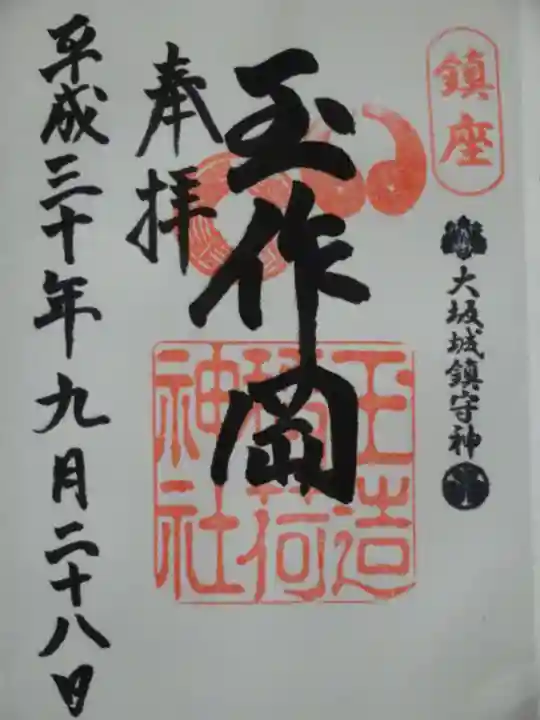 鎮座
大坂城鎮守神
玉作岡
玉造
稲荷
神社
奉拝
平成三十年九月二十八日